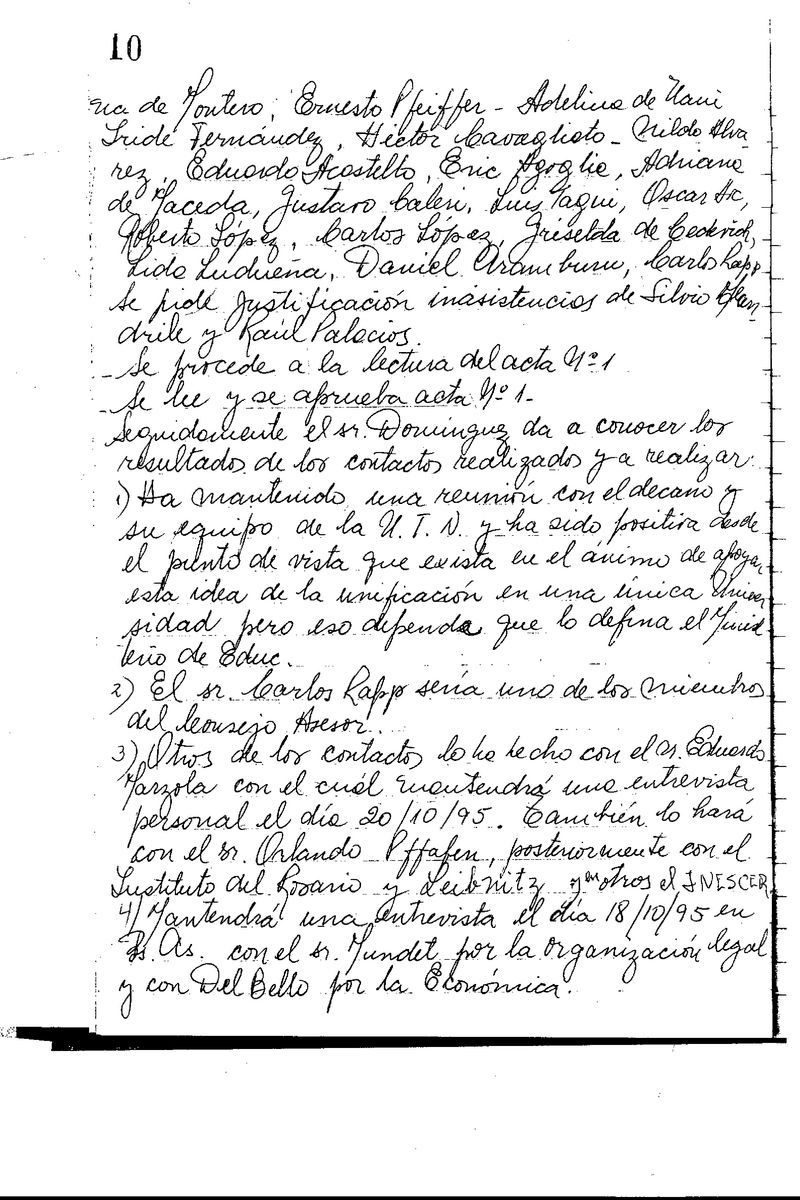 10
na de Montero, Ernesto Pfeiffer - Adelina de Nani
Iride Fernández, Héctor Cavagliato - Nildo Alva
rez, Eduardo Acastello, Eric Agoglio, Adriana
de Maceda, Gustavo Caleri, Luis Taqui, Oscar
Roberto López, Carlos López, Griselda de
Lida Ludueña, Daniel Aramburu, Carlos Rapp
Se pide justificación inasistencias de Silvio
drile y Raúl Palacios.
- Se procede a la lectura del acta Nº 1
- Se lee y se aprueba acta Nº 1 -
Seguidamente el sr. Dominguez da a conocer los
resultados de los contactos realizados y a realizar
1) Ha mantenido una reunión con el decano y
su equipo de la U.T.N. y ha sido positiva desde
el punto de vista que exista en el ánimo de apoyar
esta idea de la unificación en una única Univer
sidad pero eso depende que lo defina el Minis
terio de Educ.
2) El sr. Carlos Rapp sería uno de los miembros
del Consejo Asesor.
3) Otros de los contactos lo ha hecho con el sr. Eduardo
Marzola con el cuál mantendrá una entrevista
personal el día 20/10/95. También lo hará
con el sr. Orlando Pffafen, posteriormente con el
Instituto del Rosario y Leibnitz y otros el INESCER
4) Mantendrá una entrevista el día 18/10/95 en
Bs. As. con el sr. Mundet por la organización legal
y con Del Bello por la Económica.